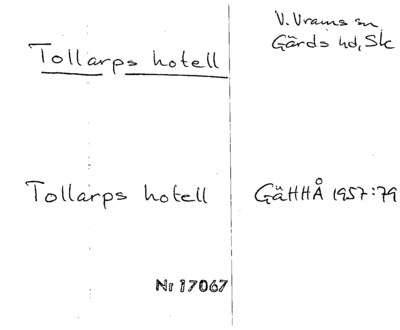 Tollarps hotell
V. Vrams sn
Gärds hd, Sk
Tollarps hotell
GäHHÅ 1957:79
Nr 17067